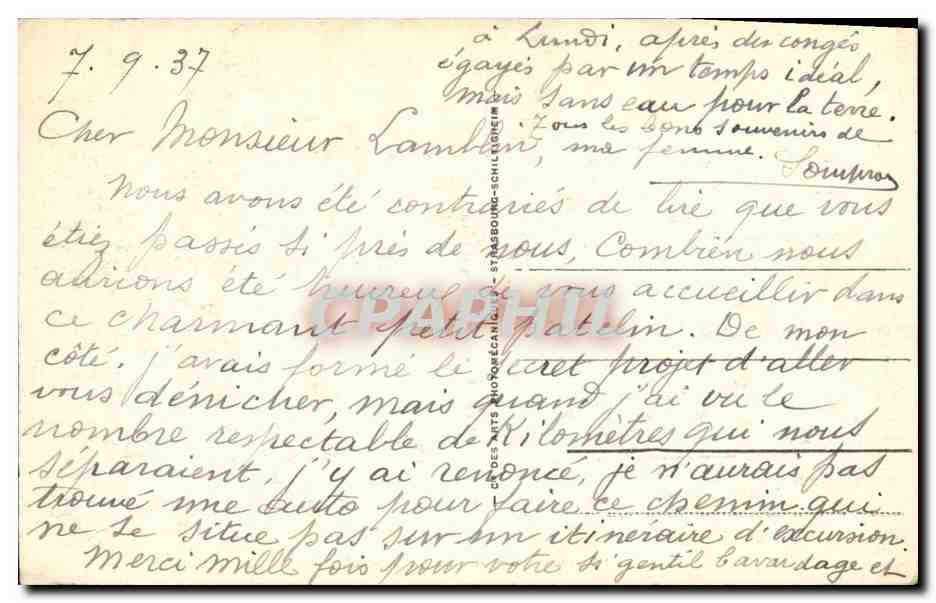 7.9.37
Cher Monsieur Lamblin,
Nous avons été contrariés de lire que vous
étiez passés si près de nous, Combien nous
aurions été heureux de vous accueillir dans
ce charmant petit patelin. De mon
côté, j'avais formé le secret projet d'aller
vous dénicher, mais quand j'ai vu le
nombre respectable de Kilomètres qui nous
séparaient, j'y ai renoncé, je n'aurais pas
trouvé une auto pour faire ce chemin qui
ne se situe pas sur un itinéraire d'excursion.
Merci mille fois pour votre si gentil bavardage et
à Lundi, après des congés
égayés par un temps idéal,
mais sans eau pour la terre.
Tous les bons souvenirs de
ma femme.
CIE DES ARTS PHOTOMÉCANIQUES - STRASBOURG-SCHILTIGHEIM
CPAPHIL